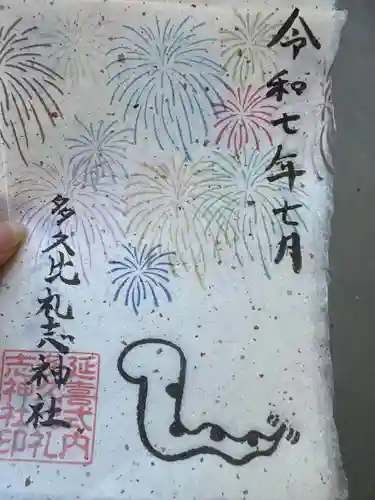 令和七年七月
多久比礼志神社
延喜式内
志神社印